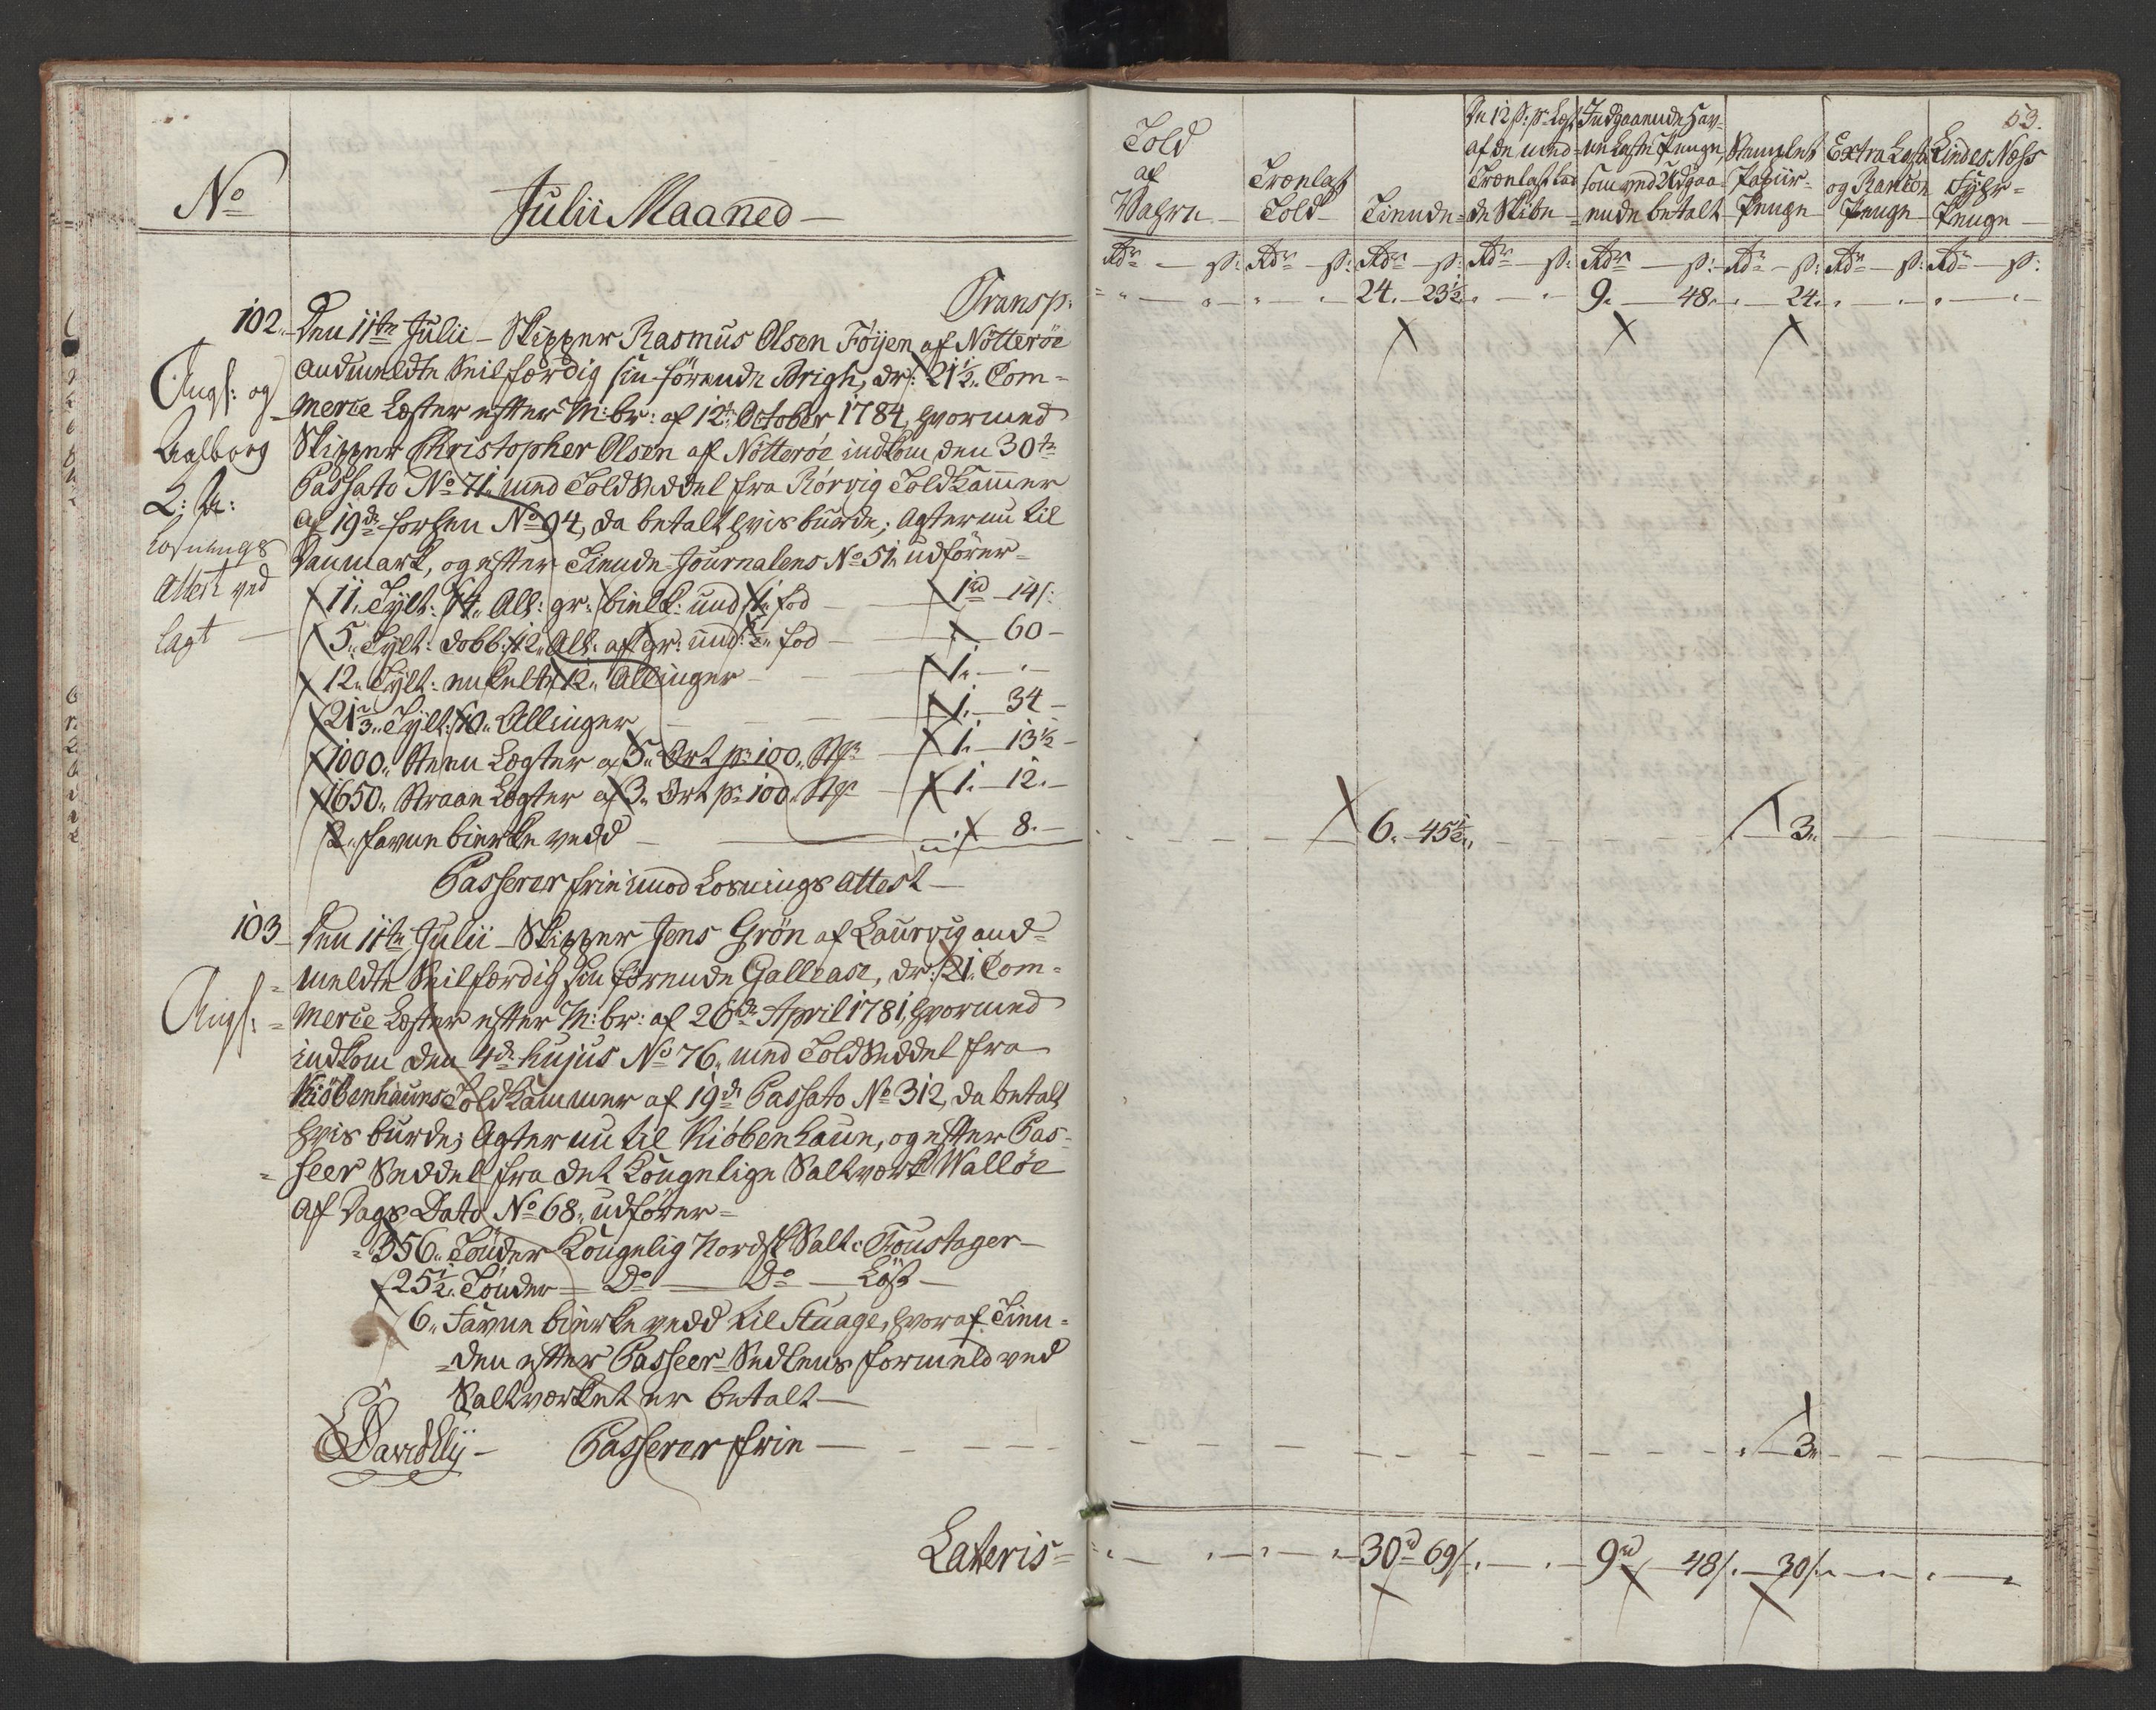 No
Julii Maaned
Transp:
102. Den 11te Julii - Skipper Rasmus Olsen Föÿen af Nötteröe
andmeldte Seilfærdig sin förende Brigh, dr: 21½ Com=
=merce Læster efter M:br: af 12te October 1784, hvormed
Skipper Christopher Olsen af Nötteröe indkom den 30te
Passato No 71, med Toldseddel fra Rörvig Toldkammer
af 19de forhen No 94, da betalt hvis burde; agter nu til
Danmark, og efter Tiende-Journalens No 51. udförer=
Angf: og
Aalborg
Losnings
Attest ved
lagt
11. Tylt: 14. All: gr: bielk: und: 1. fod - 1rd 14s:
5. Tylt: dobb: 12. All: af gr: und: ½. fod - 60 -
12. Tylt: enkelte 12. Allinger - 1. - " -
21⅔. Tylt: 10. Allinger - 1. - 34 -
1000. Steen Lægter a 5. Ort pr 100. Stkr - 1. - 13½ -
1650. Straae Lægter a 3. Ort pr 100. Stkr - 1. - 12. -
2. favne birke vedd - 8. -
Passerer frie imod Losnings Attest -
103 Den 11te Julii - Skipper Jens Grön af Laurvig and=
=meldte Seilfærdig sin förende Gallease, dr: 21. Com=
Angf: =merce Læster efter M:br: af 26de April 1781, hvormed
indkom den 4de hujus No 76. med Toldseddel fra
Kiöbenhauns Toldkammer af 19de Passato No 312, da betalt
hvis burde; Agter nu til Kiöbenhaun, og efter Pas=
=seer Seddel fra det Kongelige Saltværk Wallöe
af Dags Dato No 68. udförer=
356. Tönder Kongelig Nordsk Salt i Foustager -
25½. Tönder = Do - Do - Löst -
6. Favne birke vedd til Stuage, hvoraf Tien=
=den efter Passeer-Sedlens formeld ved
Saltværket er betalt -
Passerer frie -
Lateris=
53.
Told
af
Vahre
Trælast
Told
Tiende
De 12 s: pr Lest
af de med
Trælast lad
de Skibe
Indgaaende Hav=
ne Læste Penge,
som ved Udgaa
ende betalt
Stemplet
Papiir=
Penge
Extra Læst
og Rantzon
Penge
Lindes Næss
Fyhr=
Penge
Rdr - s: Rdr - s: Rdr - s: Rdr - s: Rdr - s: Rdr - s: Rdr - s: Rdr - s:
24. 23½. 9. 48. 24.
6. 45½. 3.
3.
30rd 69s. 9rd 48s. 30s.